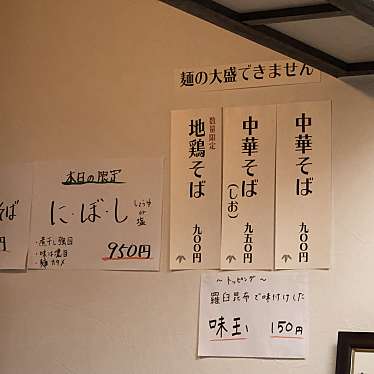 麺の大盛できません
中華そば
九〇〇円
中華そば
(しお)
九五〇円
数量限定
地鶏そば
九〇〇円
本日の限定
に・ぼ・し
しょうゆ
or
塩
・煮干し強目
・味は濃目
・麺カタメ
950円
そば
円
～トッピング～
羅臼昆布で味付けした
味玉 150円